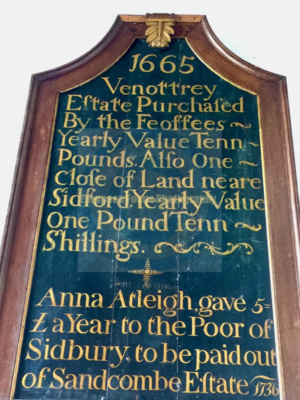 1665
Venottrey
Eſtate Purchaſed
By the Feoffees ~
Yearly Value Tenn ~
Pounds. Alſo One ~
Cloſe of Land neare
Sidford Yearly Value
One Pound Tenn ~
Shillings. ~
Anna Atleigh gave 5=
£ a Year to the Poor of
Sidbury, to be paid out
of Sandcombe Eſtate 1736